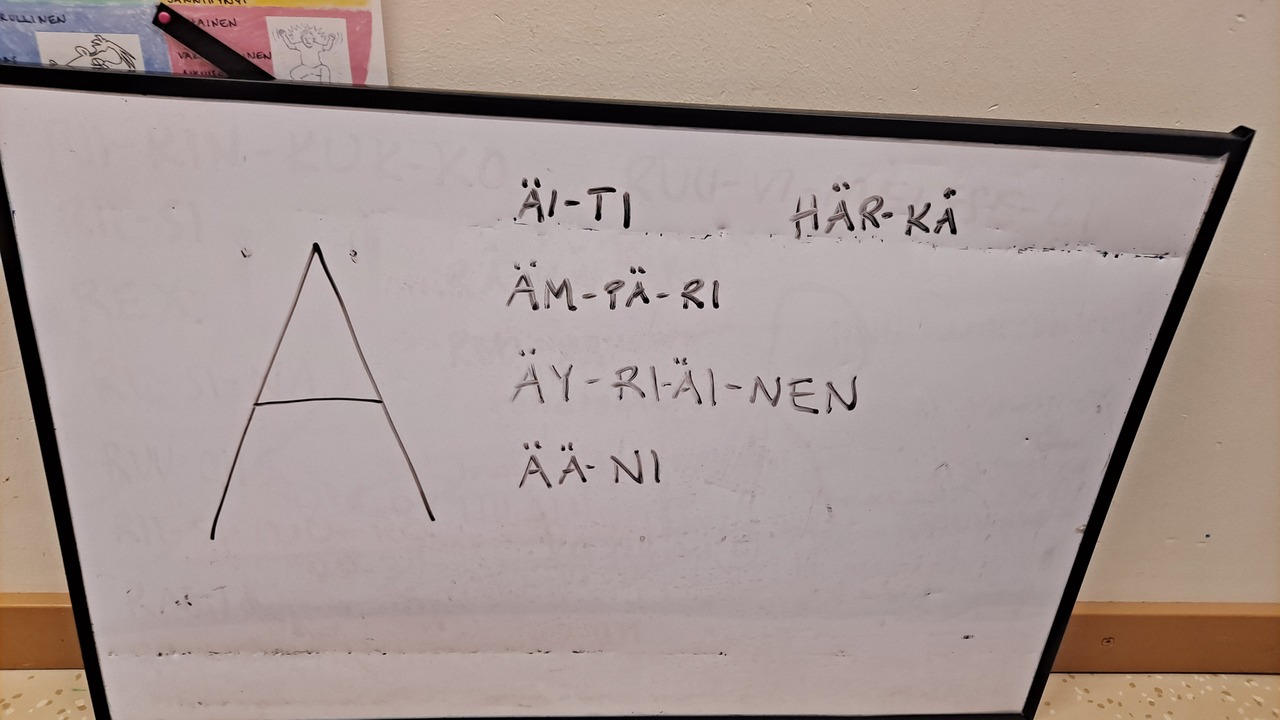 RULLINEN
AINEN
Ä
ÄI-TI HÄR-KÄ
ÄM-PÄ-RI
ÄY-RI-ÄI-NEN
ÄÄ-NI